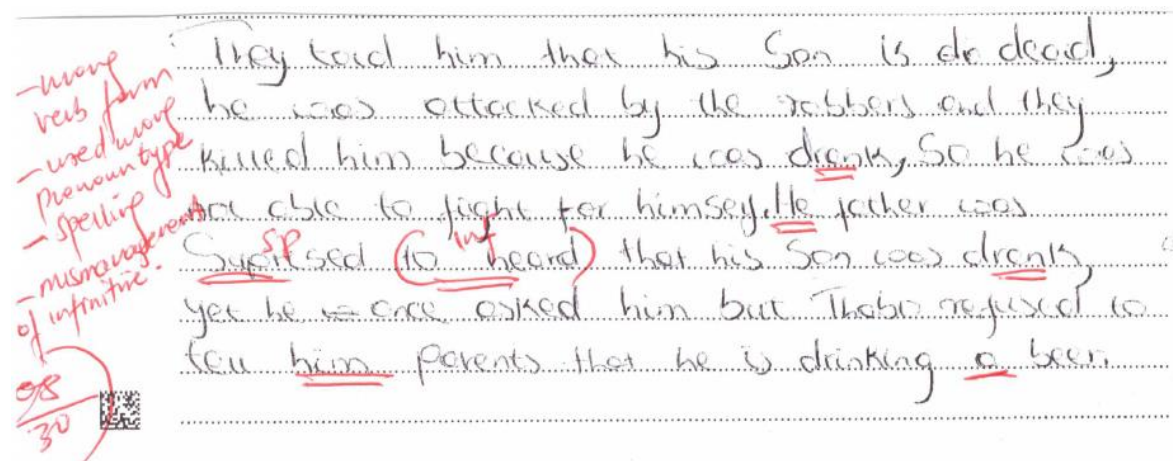 They told him that his Son is de dead,
he was attacked by the robbers and they
killed him because he was drenk, So he was
not able to fight for himself. He father was
sp inf
Suprised (to heard) that his Son was drenk,
yet he once asked him but Thabo refused to
tell him parents that he is drinking a beer.
- wrong
verb form
- used wrong
pronoun type
- spelling
- mismanagement
of infinitive.
08
30